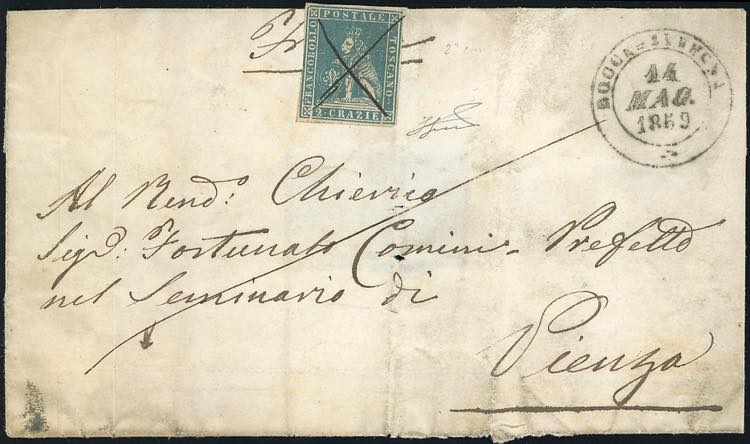 FRANCOBOLLO
POSTALE
TOSCANO
2. CRAZIE
14
MAG.
1859
Al Rend.º Chierico
Sig.e Fortunato Comini - Prefetto
nel Seminario di
Pienza